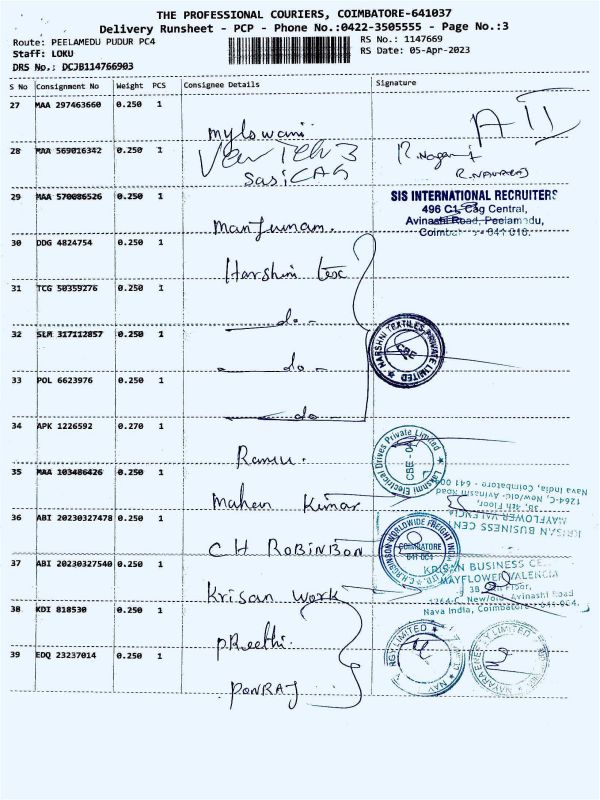 THE PROFESSIONAL COURIERS, COIMBATORE-641037
Delivery Runsheet - PCP - Phone No.:0422-3505555 - Page No.:3
Route: PEELAMEDU PUDUR PC4
Staff: LOKU
DRS No.: DCJB114766903
RS No.: 1147669
RS Date: 05-Apr-2023
S No Consignment No Weight PCS Consignee Details Signature
27 MAA 297463660 0.250 1
28 MAA 569016342 0.250 1
SasiCAG
R.Nagaraj
29 MAA 570086526 0.250 1
SIS INTERNATIONAL RECRUITERS
496 C1, Cag Central,
Avinashi Road, Peelamedu,
Coimbatore - 641 018.
Manjunan.
30 DDG 4824754 0.250 1
Harshini tex
31 TCG 50359276 0.250 1
- do -
32 SLM 317112857 0.250 1
- do -
HARSHNI TEXTILES PRIVATE LIMITED
CBE
33 POL 6623976 0.250 1
- do
34 APK 1226592 0.270 1
Ramu.
Lakshmi Electrical Drives Private Limited
CBE - 04
35 MAA 103486426 0.250 1
Mahen Kumar
KRISAN BUSINESS CENT
MAYFLOWER VALENCIA
38, 4th Floor,
1264-C, New/old- Avinashi Road
Nava India, Coimbatore - 641 004
36 ABI 20230327478 0.250 1
CH ROBINBON
C.H.ROBINSON WORLDWIDE FREIGHT INDIA
COIMBATORE
641 004
37 ABI 20230327540 0.250 1
Krisan work
KRISAN BUSINESS CE
MAYFLOWER VALENCIA
38 Floor,
1264-C, New/old Avinashi Road
Nava India, Coimbatore - 641 004.
38 KDI 818530 0.250 1
pReethi.
39 EDQ 23237014 0.250 1
PONRAJ
NAYARA ENERGY LIMITED